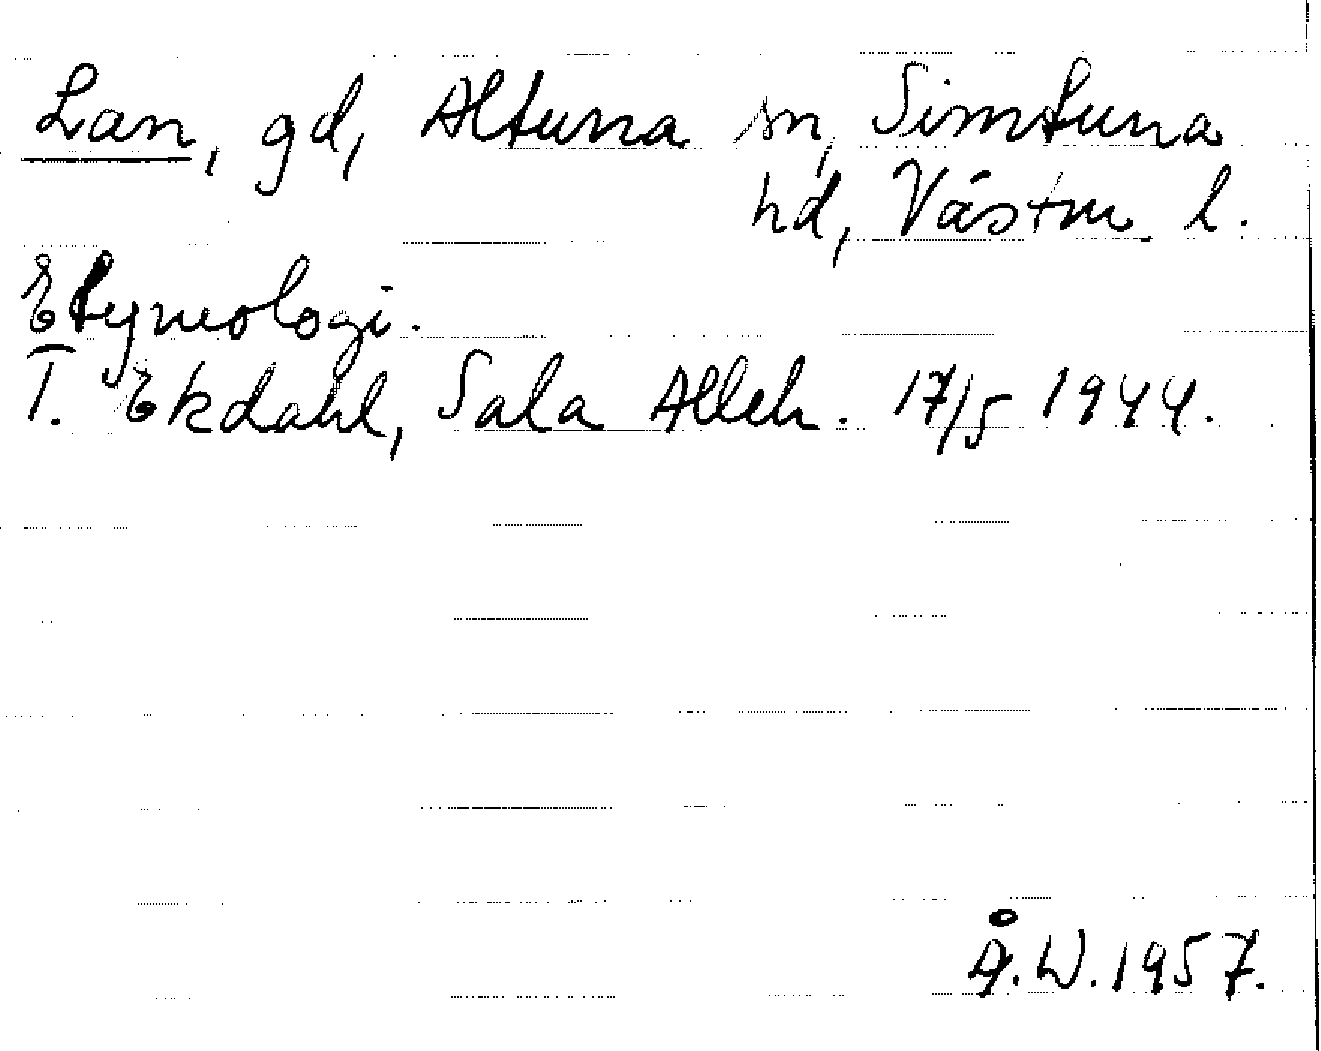 Lan, gd, Altuna sn, Simtuna
hd, Västm. l.
Etymologi.
T. Ekdahl, Sala Alleh. 17/5 1944.
Å.W. 1957.